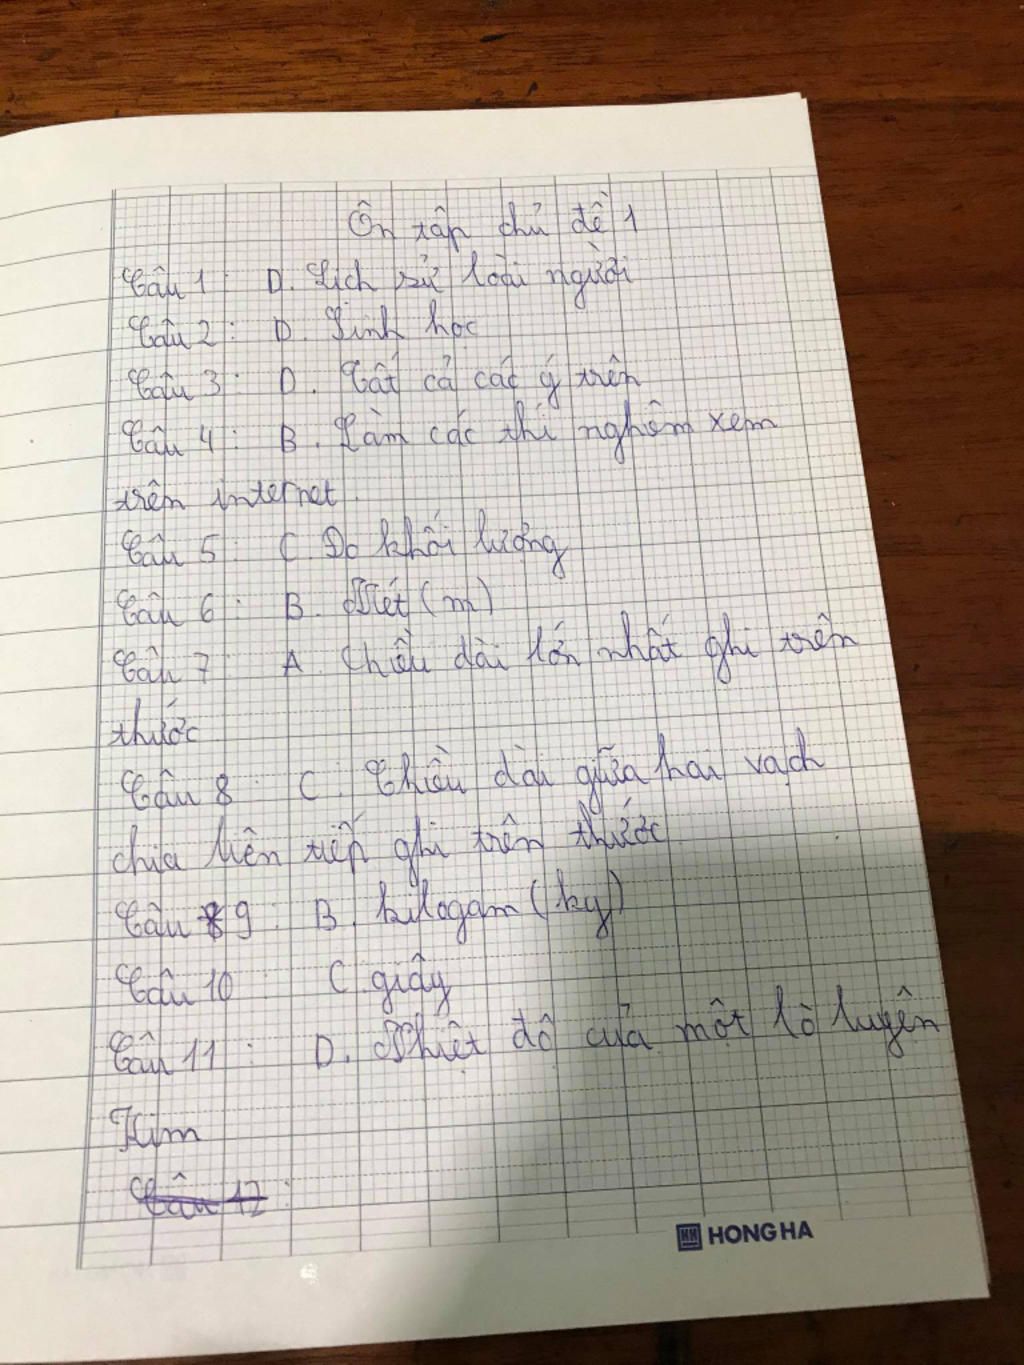 Ôn tập chủ đề 1
Câu 1: D. Lịch sử loài người
Câu 2: D. Sinh học
Câu 3: D. Tất cả các ý trên
Câu 4: B. Làm các thí nghiệm xem
trên internet
Câu 5: C. Đo khối lượng
Câu 6: B. Mét (m)
Câu 7: A. Chiều dài lớn nhất ghi trên
thước
Câu 8: C. Chiều dài giữa hai vạch
chia liên tiếp ghi trên thước
Câu 9: B. kilogam (kg)
Câu 10: C. giây
Câu 11: D. Nhiệt độ của một lò luyện
Kim
Câu 12:
HONG HA